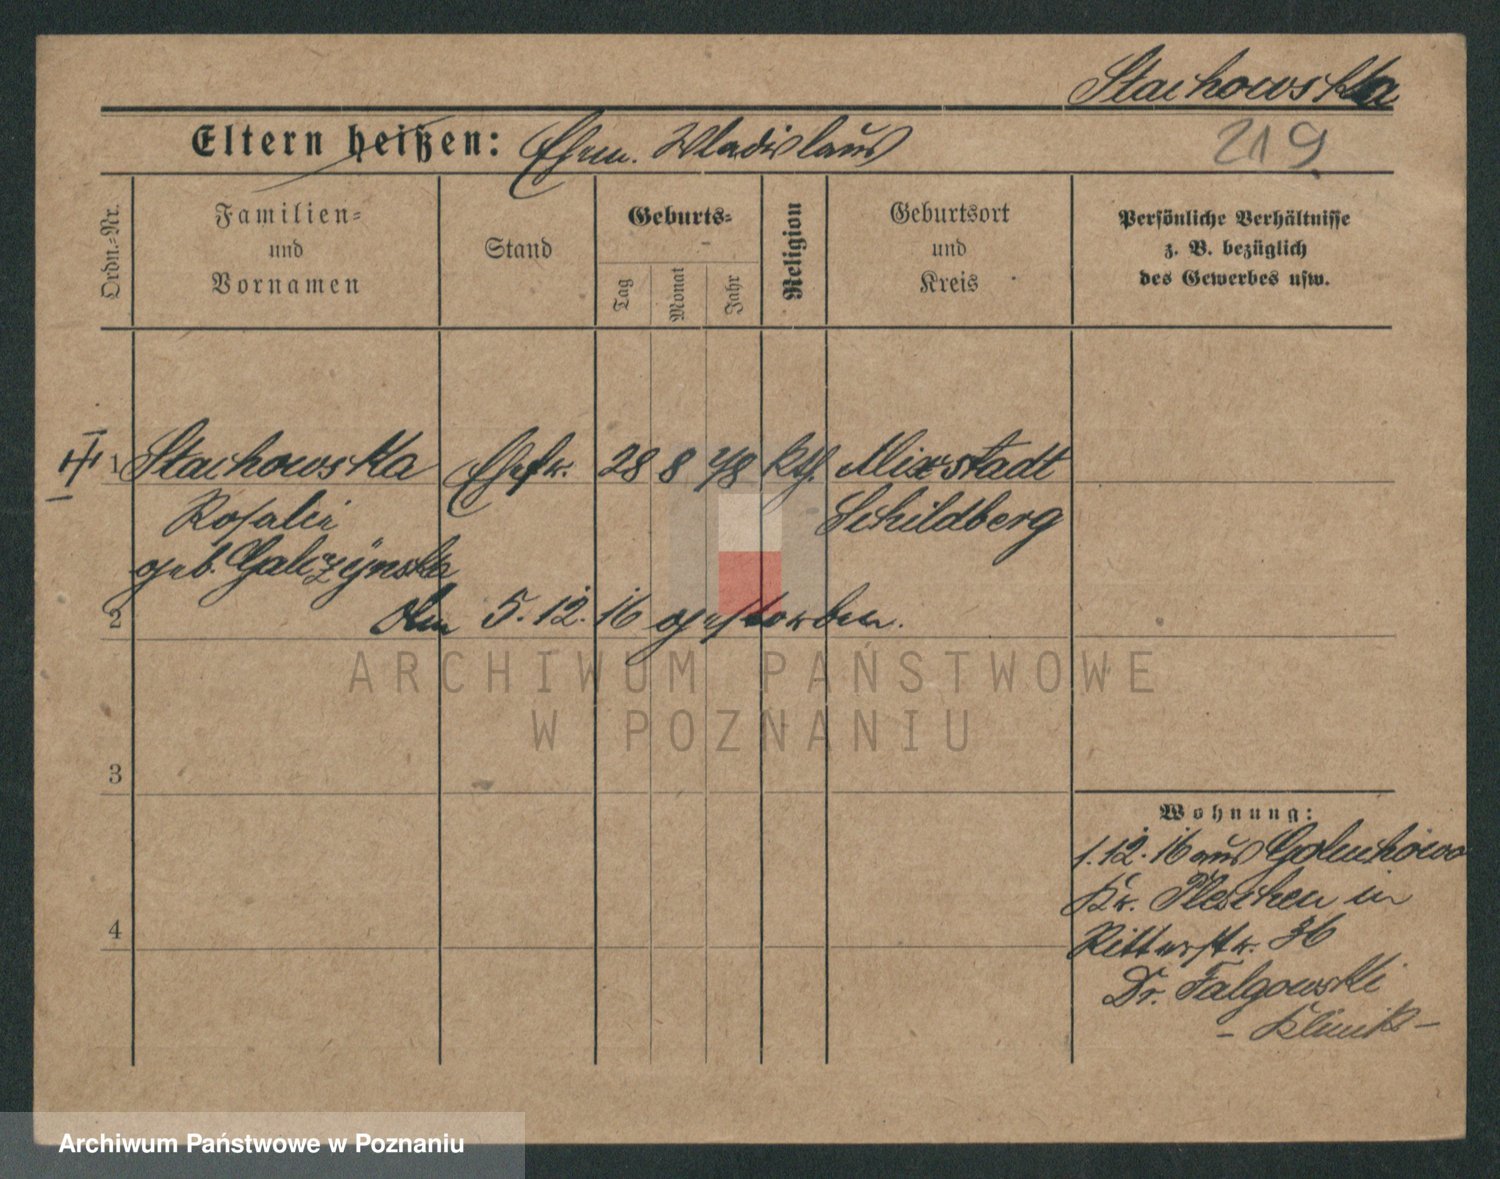 Stachowska
Eltern heißen: Ehem. Wladislaus
219
Ordn.=Nr.
Familien=
und
Vornamen
Stand
Geburts=
Tag
Monat
Jahr
Religion
Geburtsort
und
Kreis
Persönliche Verhältnisse
z. B. bezüglich
des Gewerbes usw.
1 Stachowska Ehefr. 28 8 78 kth. Mixstadt
Rosalie Schildberg
geb. Galczynska
2 Am 5.12.16 gestorben.
ARCHIWUM PAŃSTWOWE
W POZNANIU
3
Wohnung:
1.12.16 aus Goluchowo
Kr. Pleschen in
4
Ritterstr. 36
Dr. Falgowski
- Klinik -
Archiwum Państwowe w Poznaniu